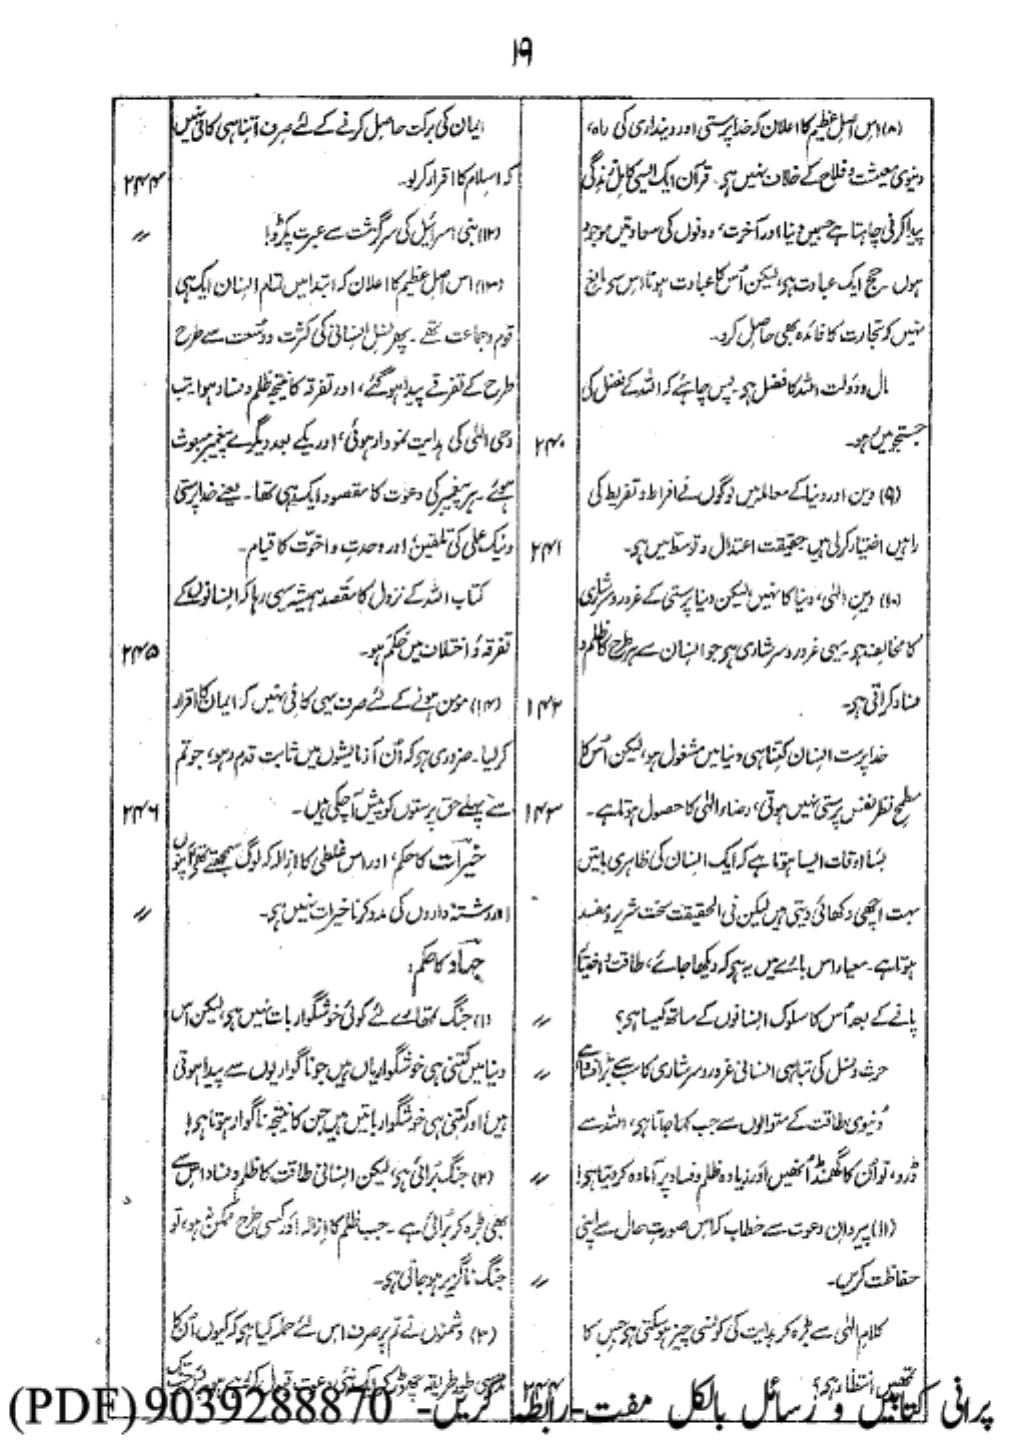 ۱۹
(۸) اس اصل عظیم کا اعلان کہ خدا پرستی اور دینداری کی راہ،
دنیوی معیشت و فلاح کے خلاف نہیں ہے۔ قرآن ایک ایسی کامل زندگی
پیدا کرنی چاہتا ہے جس میں دنیا اور آخرت، دونوں کی سعادتیں موجود
ہوں۔ حج ایک عبادت ہے، لیکن اُس کا عبادت ہونا اس سے مانع
نہیں کہ تجارت کا فائدہ بھی حاصل کرو۔
مال و دولت اللہ کا فضل ہے۔ پس چاہئے کہ اللہ کے فضل کی
جستجو میں رہو۔ ۲۴۰
(۹) دین اور دنیا کے معاملہ میں لوگوں نے افراط و تفریط کی
راہیں اختیار کرلی ہیں حقیقت اعتدال و توسط میں ہے۔ ۲۴۱
(۱۰) دینِ الٰہی، دنیا کا نہیں لیکن دنیا پرستی کے غرور و سرشاری
کا مخالف ہے۔ یہی غرور و سرشاری ہے جو انسان سے ہر طرح کا ظلم و
فساد کراتی ہے۔ ۱۴۲
خدا پرست انسان کتنا ہی دنیا میں مشغول ہو، لیکن اُس کا
مطمحِ نظر نفس پرستی نہیں ہوتی، رضاءِ الٰہی کا حصول ہوتا ہے۔ ۱۴۳
بسا اوقات ایسا ہوتا ہے کہ ایک انسان کی ظاہری باتیں
بہت اچھی دکھائی دیتی ہیں لیکن فی الحقیقت سخت شریر و مفسد
ہوتا ہے۔ معیار اس بارے میں یہ ہے کہ دیکھا جائے، طاقت و اختیار
پانے کے بعد اُس کا سلوک انسانوں کے ساتھ کیسا ہے؟ ″
حرث و نسل کی تباہی انسانی غرور و سرشاری کا سب سے بڑا فساد ہے ″
دنیوی طاقت کے متوالوں سے جب کہا جاتا ہے، اللہ سے
ڈرو، تو اُن کا گھمنڈ اُنھیں اور زیادہ ظلم و فساد پر آمادہ کردیتا ہے! ″
(۱۱) پیروانِ دعوت سے خطاب کہ اس صورتِ حال سے اپنی
حفاظت کریں۔ ″
کلامِ الٰہی سے بڑھ کر ہدایت کی کونسی چیز ہوسکتی ہے جس کا
تمھیں انتظار ہے؟ ۲۴۴
ایمان کی برکت حاصل کرنے کے لئے صرف اتنا ہی کافی نہیں
کہ اسلام کا اقرار کرلو۔ ۲۴۴
(۱۲) بنی اسرائیل کی سرگزشت سے عبرت پکڑو! ″
(۱۳) اس اصل عظیم کا اعلان کہ ابتدا میں تمام انسان ایک ہی
قوم و جماعت تھے۔ پھر نسلِ انسانی کی کثرت و وسعت سے طرح
طرح کے تفرقے پیدا ہوگئے، اور تفرقہ کا نتیجہ ظلم و فساد ہوا۔ تب
وحی الٰہی کی ہدایت نمودار ہوئی، اور یکے بعد دیگرے پیغمبر مبعوث
ہوئے۔ ہر پیغمبر کی دعوت کا مقصود ایک ہی تھا۔ یعنے خدا پرستی
و نیک عملی کی تلقین اور وحدت و اخوت کا قیام۔
کتاب اللہ کے نزول کا مقصد ہمیشہ یہی رہا کہ انسانوں کے
تفرقہ و اختلاف میں حَکَم ہو۔ ۲۴۵
(۱۴) مومن ہونے کے لئے صرف یہی کافی نہیں کہ ایمان کا اقرار
کرلیا۔ ضروری ہے کہ اُن آزمائشوں میں ثابت قدم رہو، جو تم
سے پہلے حق پرستوں کو پیش آچکی ہیں۔ ۲۴۶
خیرات کا حکم، اور اس غلطی کا ازالہ کہ لوگ سمجھتے تھے اپنوں
اور رشتہ داروں کی مدد کرنا خیرات نہیں ہے۔ ″
جہاد کا حکم:
(۱) جنگ تمھارے لئے کوئی خوشگوار بات نہیں ہے، لیکن اس
دنیا میں کتنی ہی خوشگواریاں ہیں جو ناگواریوں سے پیدا ہوتی
ہیں، اور کتنی ہی خوشگوار باتیں ہیں جن کا نتیجہ ناگوار ہوتا ہے!
(۲) جنگ بُرائی ہے، لیکن انسانی طاقت کا ظلم و فساد اس سے
بھی بڑھ کر بُرائی ہے۔ جب ظلم کا ازالہ اور کسی طرح ممکن نہ ہو، تو
جنگ ناگزیر ہوجاتی ہے۔
(۳) دشمنوں نے تم پر صرف اس لئے حملہ کیا ہے کہ کیوں اُن کا
طور طریقہ چھوڑ کر ایک نئی دعوت قبول
پرانی کتابیں و رسائل بالکل مفت۔ رابطہ کریں۔ 9039288870 (PDF)